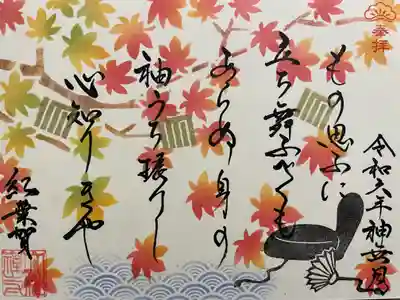 奉拝
令和六年神無月
もの思ふに
立ち舞ふべくも
あらぬ身の
袖うち振りし
心知りきや
紅葉賀